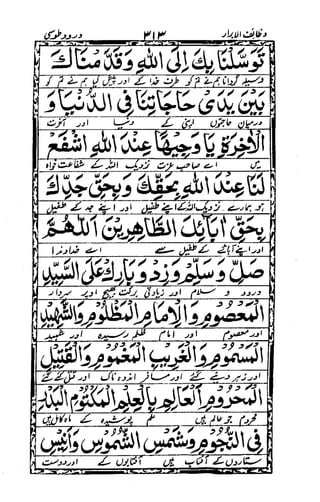 وظائف الابرار ۳۱۳ درود طوسی
تَوَسَّلْنَا بِكَ اِلَى اللهِ وَقَدَّمْنَاكَ
وسیلہ گردانا ہم نے تم کو طرف خدا کے اور پیش کیا ہم نے تم کو
بَيْنَ يَدَىْ حَاجَاتِنَا فِى الدُّنْيَا وَ
درمیان حاجتوں اپنی کے دنیا اور آخرت
الْاٰخِرَةِ يَا وَجِيْهًا عِنْدَ اللهِ اشْفَعْ
میں اے صاحب عزت نزدیک اللہ کے شفاعت خواہ
لَنَا عِنْدَ اللهِ بِحَقِّكَ وَبِحَقِّ جَدِّكَ
ہو ہمارے نزدیک اللہ کے اپنے طفیل اور اپنے جد کے طفیل
بِحَقِّ اٰبَائِكَ الطَّاهِرِيْنَ اَللّٰهُمَّ
اور اپنے آبائے کے طفیل سے اے خداوندا
صَلِّ وَسَلِّمْ وَزِدْ وَبَارِكْ عَلَى السَّيِّدِ
درود و سلام اور زیادتی برکت بھیج اوپر سردار
الْمَعْصُوْمِ وَالْاِمَامِ الْمَظْلُوْمِ وَالشَّهِيْدِ
اور معصوم اور امام ظلم رسیدہ اور شہید
الْمَسْمُوْمِ وَالْغَرِيْبِ الْمَغْمُوْمِ وَالْقَتِيْلِ
اور زہر دیئے گئے اور مسافر اندوہ ناک اور قتل کئے گئے
الْمَحْرُوْمِ الْعَالِمِ بِالْعِلْمِ الْمَكْتُوْمِ الْبَدْرِ
محروم جو عالم ہیں علم پوشیدہ کے ماہ کامل ہیں
فِى النُّجُوْمِ وَشَمْسِ الشُّمُوْسِ وَاَنِيْسِ
ستاروں کے آفتاب ہیں آفتابوں کے اور دوست